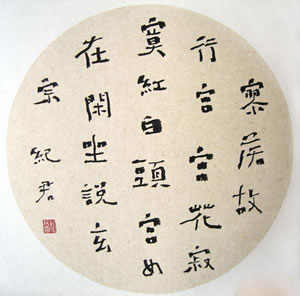 寥落故
行宮宮花寂
寞紅白頭宮女
在閑坐說玄
宗 紀君